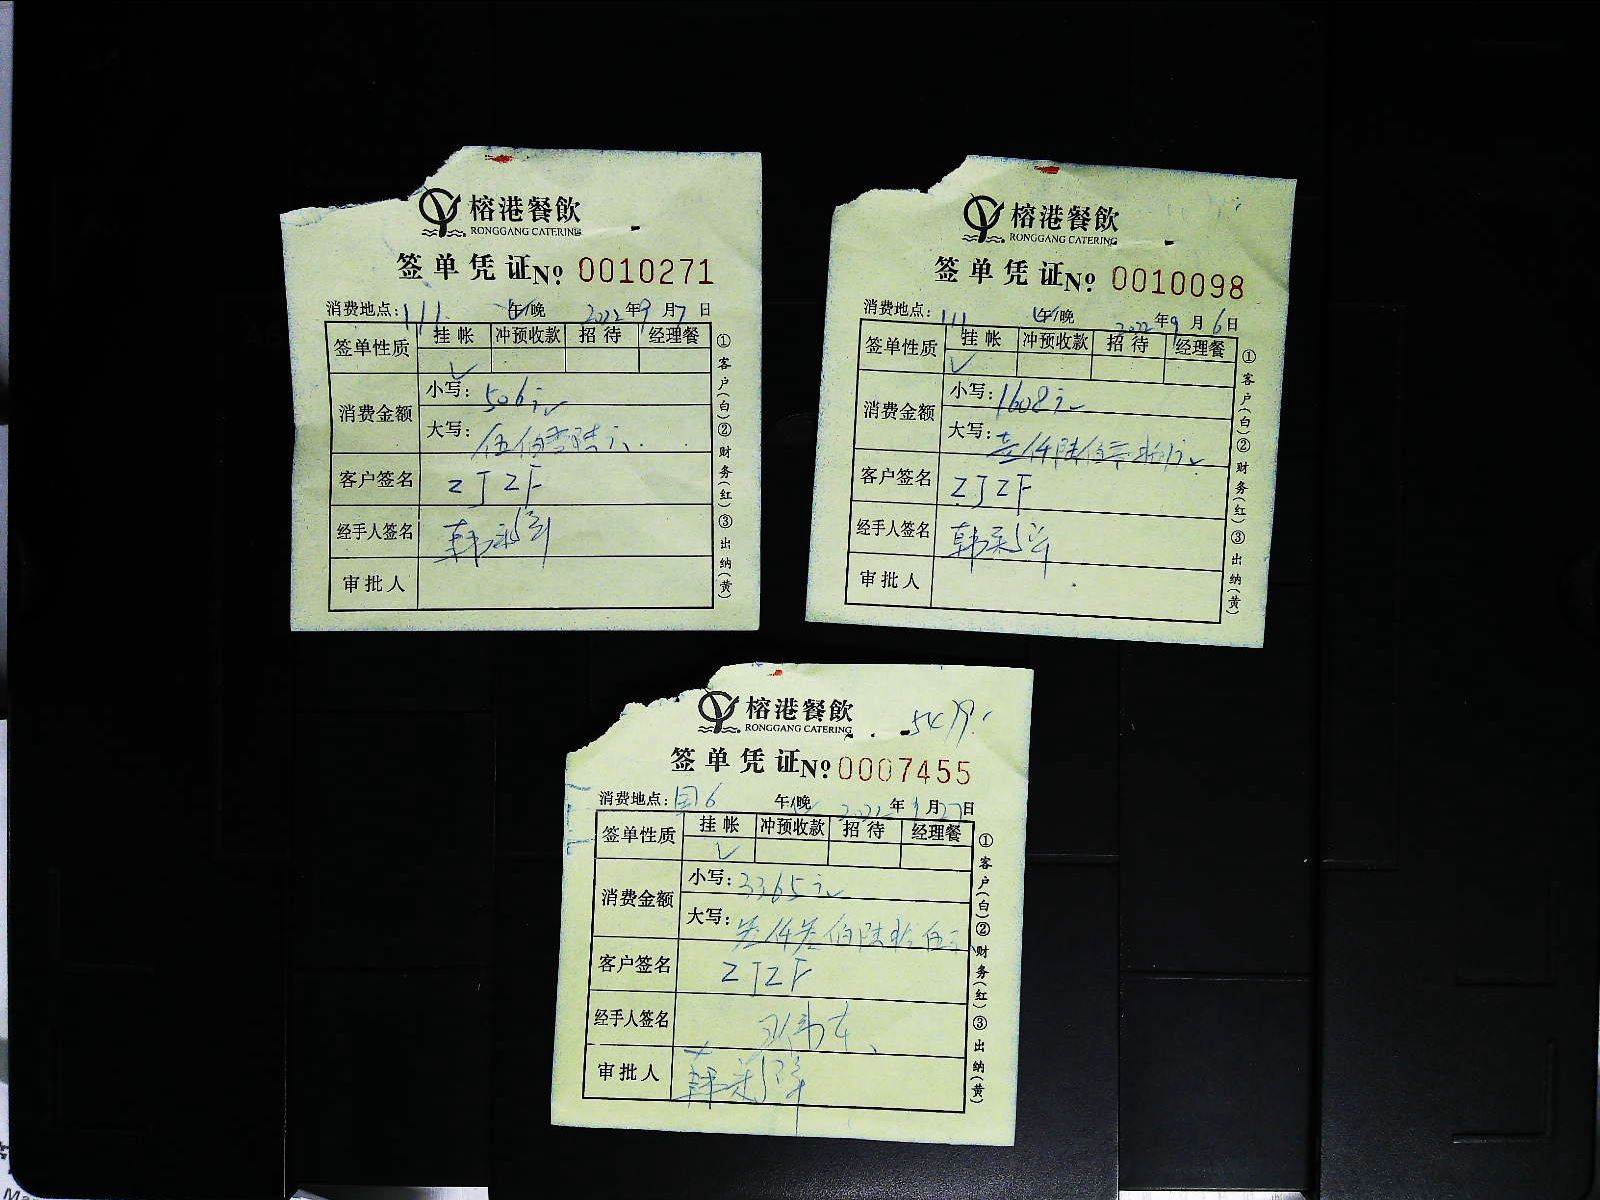 榕港餐飲
RONGGANG CATERING
签单凭证 № 0010271
消费地点: 111. 午/晚 2022年9月7日
签单性质 挂帐 冲预收款 招待 经理餐
✓
消费金额 小写: 506元
大写: 伍佰零陆元.
客户签名 ZJZF
经手人签名 韩
审批人
①客户(白)②财务(红)③出纳(黄)
榕港餐飲
RONGGANG CATERING
签单凭证 № 0010098
消费地点: 111 午/晚 2022年9月6日
签单性质 挂帐 冲预收款 招待 经理餐
✓
消费金额 小写: 1608元
大写: 壹仟陆佰零捌元
客户签名 ZJZF
经手人签名 韩
审批人
①客户(白)②财务(红)③出纳(黄)
榕港餐飲
RONGGANG CATERING
签单凭证 № 0007455
消费地点: 国6 午/晚 2022年 月27日
签单性质 挂帐 冲预收款 招待 经理餐
✓
消费金额 小写: 3365元
大写: 叁仟叁佰陆拾伍元
客户签名 ZJZF
经手人签名
审批人 韩
①客户(白)②财务(红)③出纳(黄)